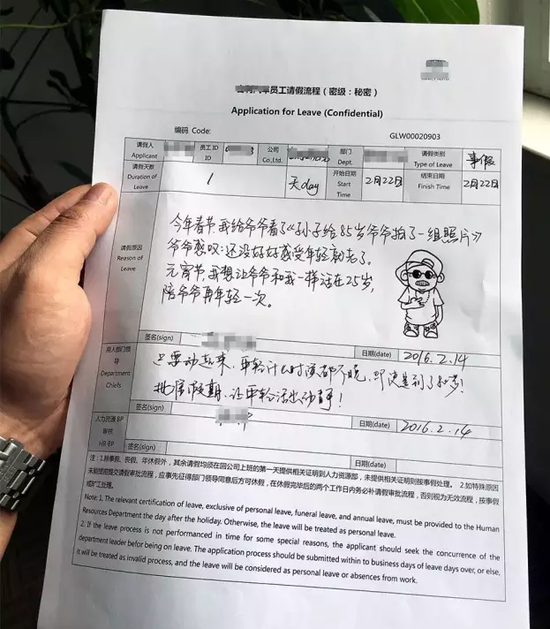 员工请假流程（密级：秘密）
Application for Leave (Confidential)
编码 Code: GLW00020903
请假人 Applicant 员工ID ID 公司 Co,Ltd. 部门 Dept. 请假类别 Type of Leave 事假
请假天数 Duration of Leave 1 天day 开始日期 Start Time 2月22日 结束日期 Finish Time 2月22日
请假原因 Reason of Leave
今年春节我给爷爷看了《孙子给85岁爷爷拍了一组照片》
爷爷感叹:还没好好感受年轻就老了。
元宵节,我想让爷爷和我一样活在25岁,
陪爷爷再年轻一次。
签名(sign) 日期(date) 2016.2.14
用人部门领导 Department Chiefs
只要动起来,年轻什么时候都不晚,即使是到了80岁!
批准假期,让年轻活出动静!
签名(sign) 日期(date) 2016.2.14
人力资源BP审核 HR BP
签名(sign) 日期(date)
注：1.除事假、丧假、年休假外，其余请假均须在回公司上班的第一天提供相关证明到人力资源部，未提供相关证明则按事假处理。 2.如特殊原因
未能按照提交请假审批流程，应事先征得部门领导同意后方可休假，在休假完毕后的两个工作日内务必补请假审批流程，否则视为无效流程，按事假
或旷工处理。
Note: 1. The relevant certification of leave, exclusive of personal leave, funeral leave, and annual leave, must be provided to the Human
Resources Department the day after the holiday. Otherwise, the leave will be treated as personal leave.
2. If the leave process is not performanced in time for some special reasons, the applicant should seek the concurrence of the
department leader befor being on leave. The application process should be submitted within to business days of leave days over, or else,
it will be treated as invalid process, and the leave will be considered as personal leave or absences from work.